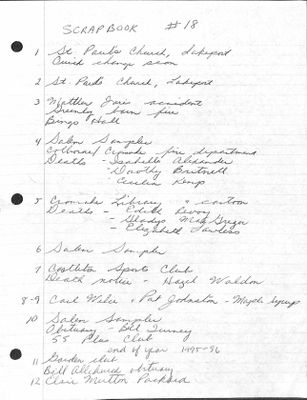 SCRAPBOOK #18
1 St. Paul's Church, Lakeport
Quick change soon
2 St. Paul's Church, Lakeport
3 Matthew accident
barn fire
Bingo Hall
4 Salem Sampler
Cramahe fire department
Deaths - Isabelle Alexander
" Dorothy Britnell
" Cecilia Kemp
5 Cramahe Library " cartoon
Deaths - Edith
- Gladys MacGregor
- Elizabeth Lawless
6 Salem Sampler
7 Castleton Sports Club
Death notice - Hazel Waldon
8-9 Carl Wilce & Pat Johnston - Maple Syrup
10 Salem Sampler
Obituary - Bill Turney
55 Plus Club
end of year 1995-96
11 Garden club
Bill obituary
12 Clair Mutton Packard